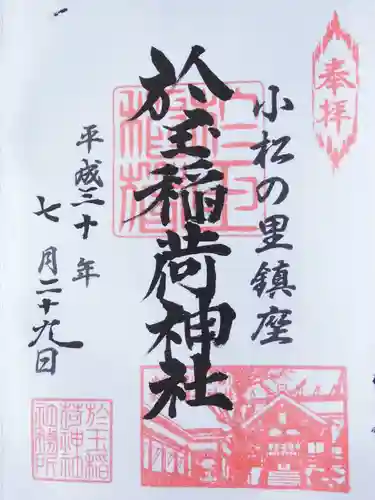 奉拝
小松の里鎮座
於玉稲荷神社
平成三十年
七月二十九日
於玉稲
荷神社
社務所